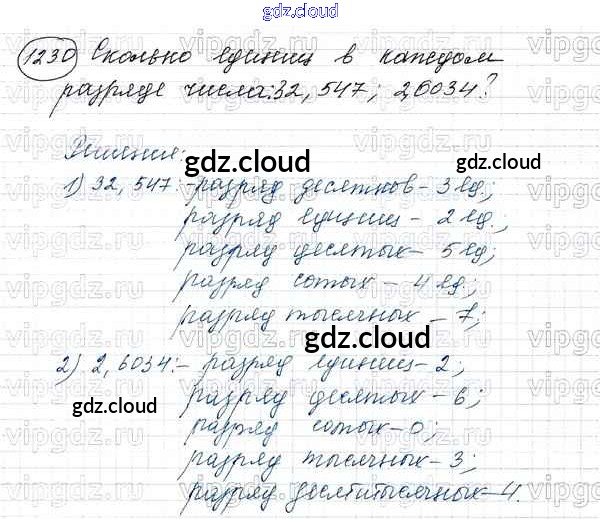 gdz.cloud
1230 Сколько единиц в каждом
разряде числа: 32,547; 2,6034?
Решение:
gdz.cloud
1) 32,547: - разряд десятков - 3 ед.;
разряд единиц - 2 ед.;
разряд десятых - 5 ед;
разряд сотых - 4 ед.;
разряд тысячных - 7;
gdz.cloud
2) 2,6034: - разряд единиц - 2;
разряд десятых - 6;
gdz.cloud
разряд сотых - 0;
разряд тысячных - 3;
разряд десятитысячных - 4.
vipgdz.ru